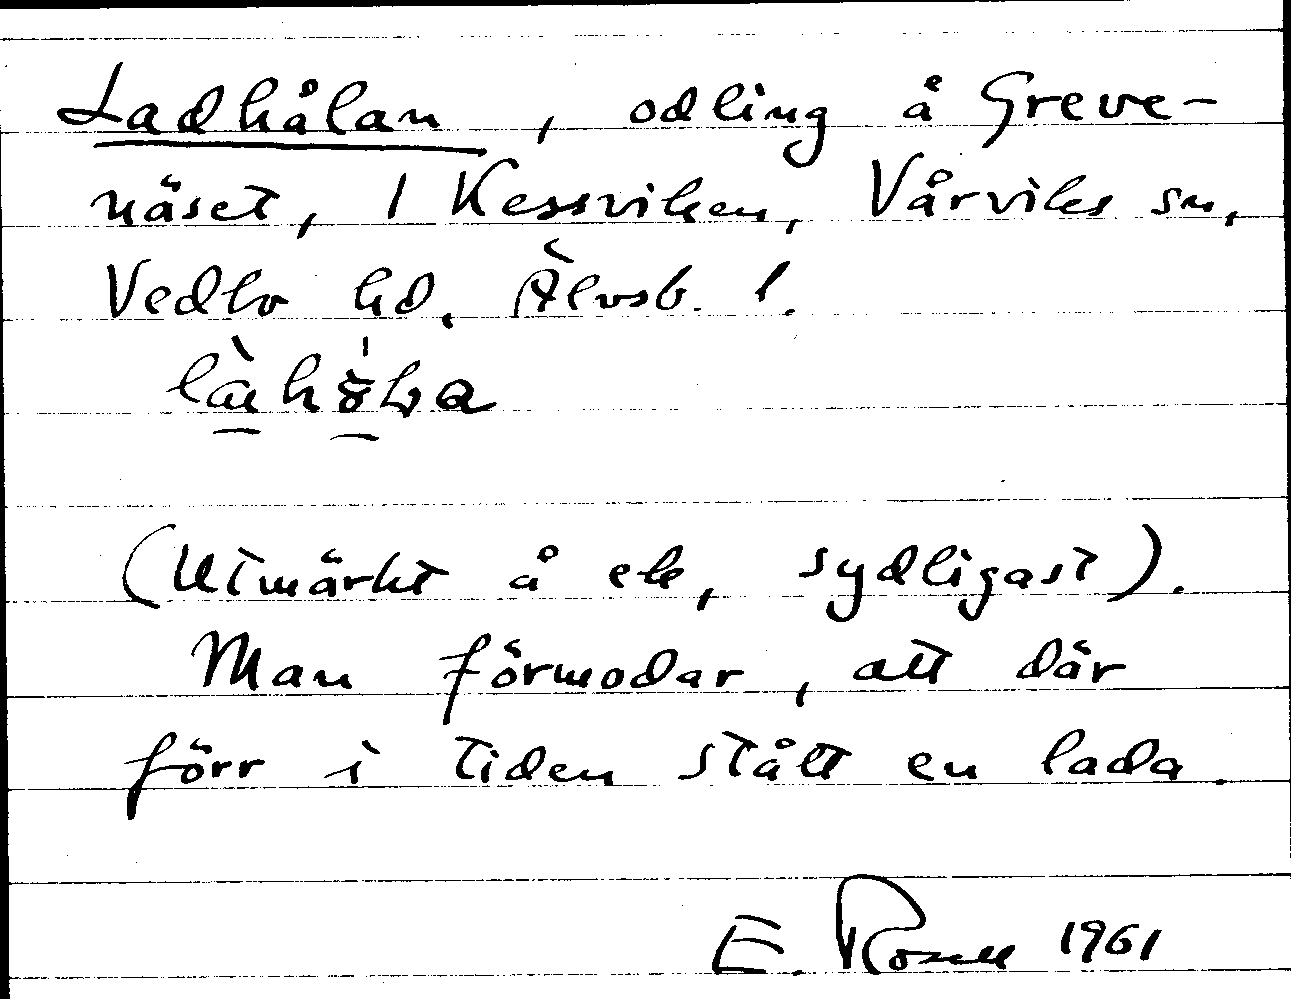 Ladhålan, odling å Greve-
näset, 1 Kessviken, Vårviks sn,
Vedbo hd. Älvsb. l.
(Utmärkt å ek, sydligast).
Man förmodar, att där
förr i tiden stått en lada.
E. Rosell 1961